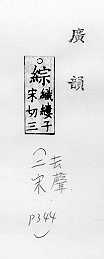 廣韻
○綜織縷子
宋切三
(去聲
二宋
P344)